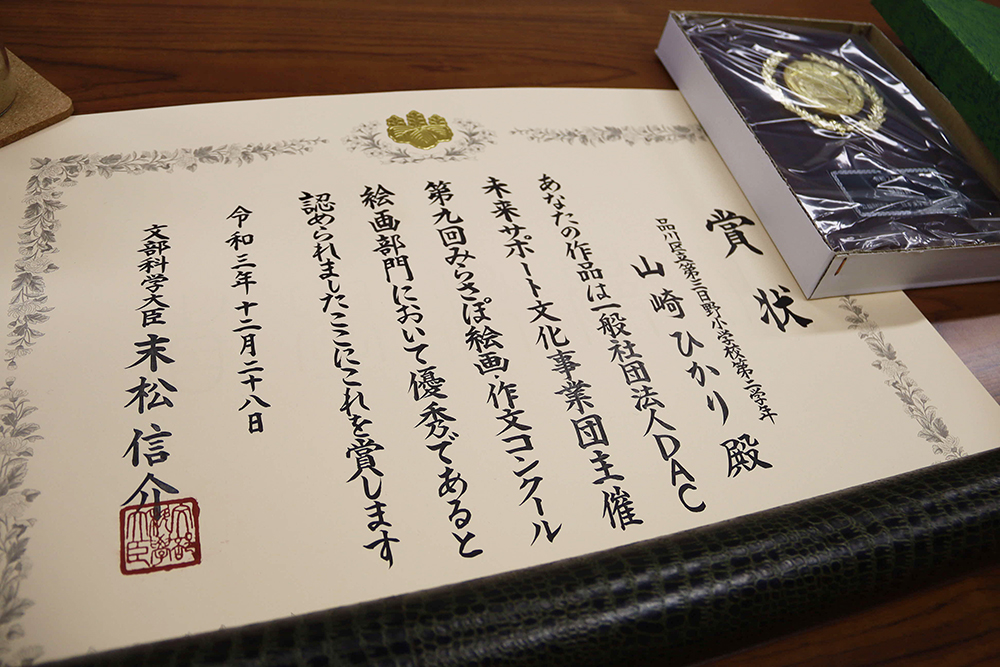 賞状
品川区立第三日野小学校第二学年
山崎ひかり殿
あなたの作品は一般社団法人DAC
未来サポート文化事業団主催
第九回みらさぽ絵画・作文コンクール
絵画部門において優秀であると
認められましたここにこれを賞します
令和三年十二月二十八日
文部科学大臣 末松信介